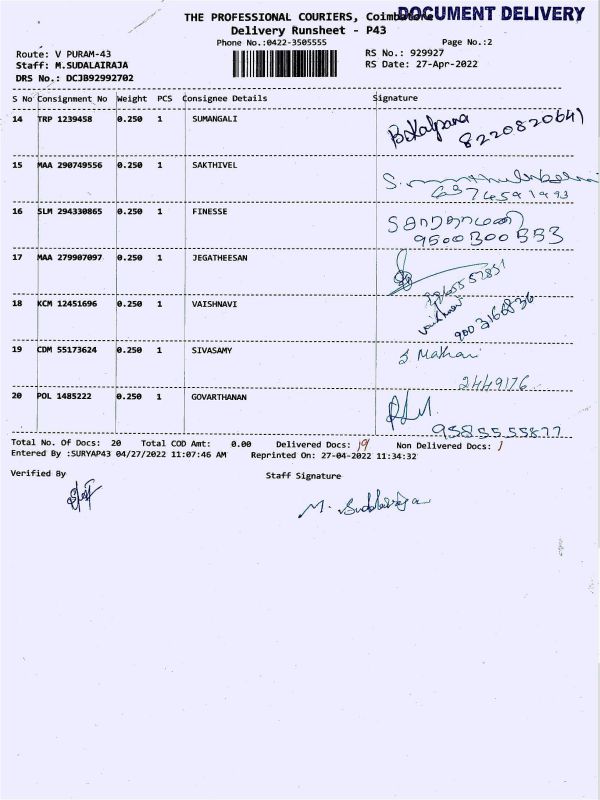 THE PROFESSIONAL COURIERS, Coimbatore
DOCUMENT DELIVERY
Delivery Runsheet - P43
Phone No.:0422-3505555 Page No.:2
Route: V PURAM-43 RS No.: 929927
Staff: M.SUDALAIRAJA RS Date: 27-Apr-2022
DRS No.: DCJB92992702
S No Consignment No Weight PCS Consignee Details Signature
14 TRP 1239458 0.250 1 SUMANGALI B.Kalpana
8220820641
15 MAA 290749556 0.250 1 SAKTHIVEL
16 SLM 294330865 0.250 1 FINESSE
9500300333
17 MAA 279907097 0.250 1 JEGATHEESAN
18 KCM 12451696 0.250 1 VAISHNAVI vaishnavi
9003160836
19 CDM 55173624 0.250 1 SIVASAMY
2449176
20 POL 1485222 0.250 1 GOVARTHANAN
9585555877
Total No. Of Docs: 20 Total COD Amt: 0.00 Delivered Docs: 19 Non Delivered Docs: 1
Entered By :SURYAP43 04/27/2022 11:07:46 AM Reprinted On: 27-04-2022 11:34:32
Verified By Staff Signature
M. Sudalairaja